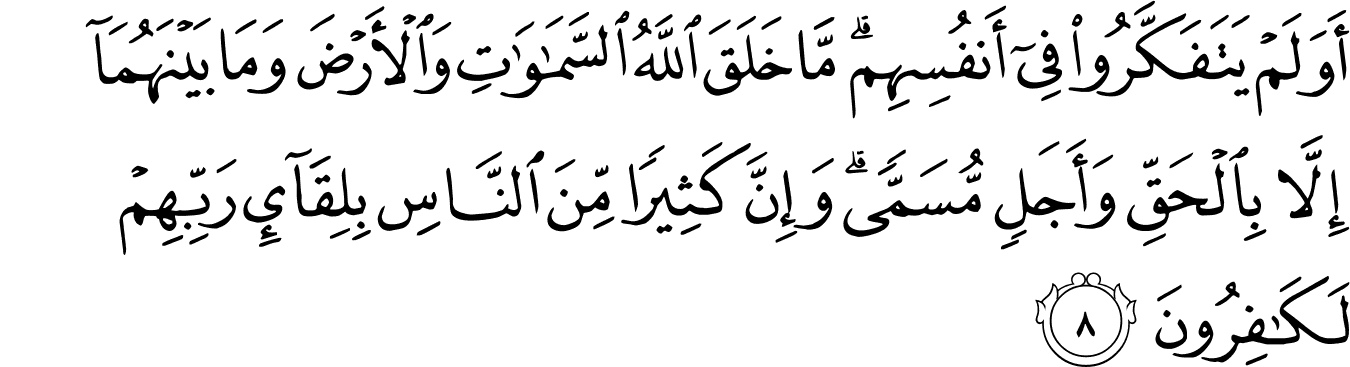 أَوَلَمْ يَتَفَكَّرُوا۟ فِىٓ أَنفُسِهِم ۗ مَّا خَلَقَ ٱللَّهُ ٱلسَّمَـٰوَٰتِ وَٱلْأَرْضَ وَمَا بَيْنَهُمَآ
إِلَّا بِٱلْحَقِّ وَأَجَلٍ مُّسَمًّى ۗ وَإِنَّ كَثِيرًا مِّنَ ٱلنَّاسِ بِلِقَآئِ رَبِّهِمْ
لَكَـٰفِرُونَ ٨